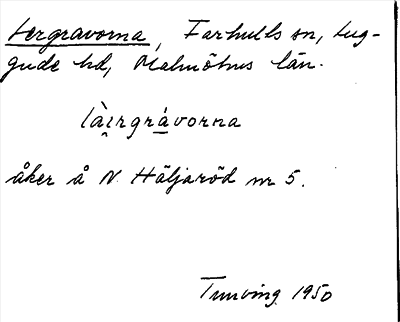 Lergravorna, Farhults sn, Lug-
gude hd, Malmöhus län.
làirgrávorna
åker å N. Häljaröd nr 5.
Tunving 1950